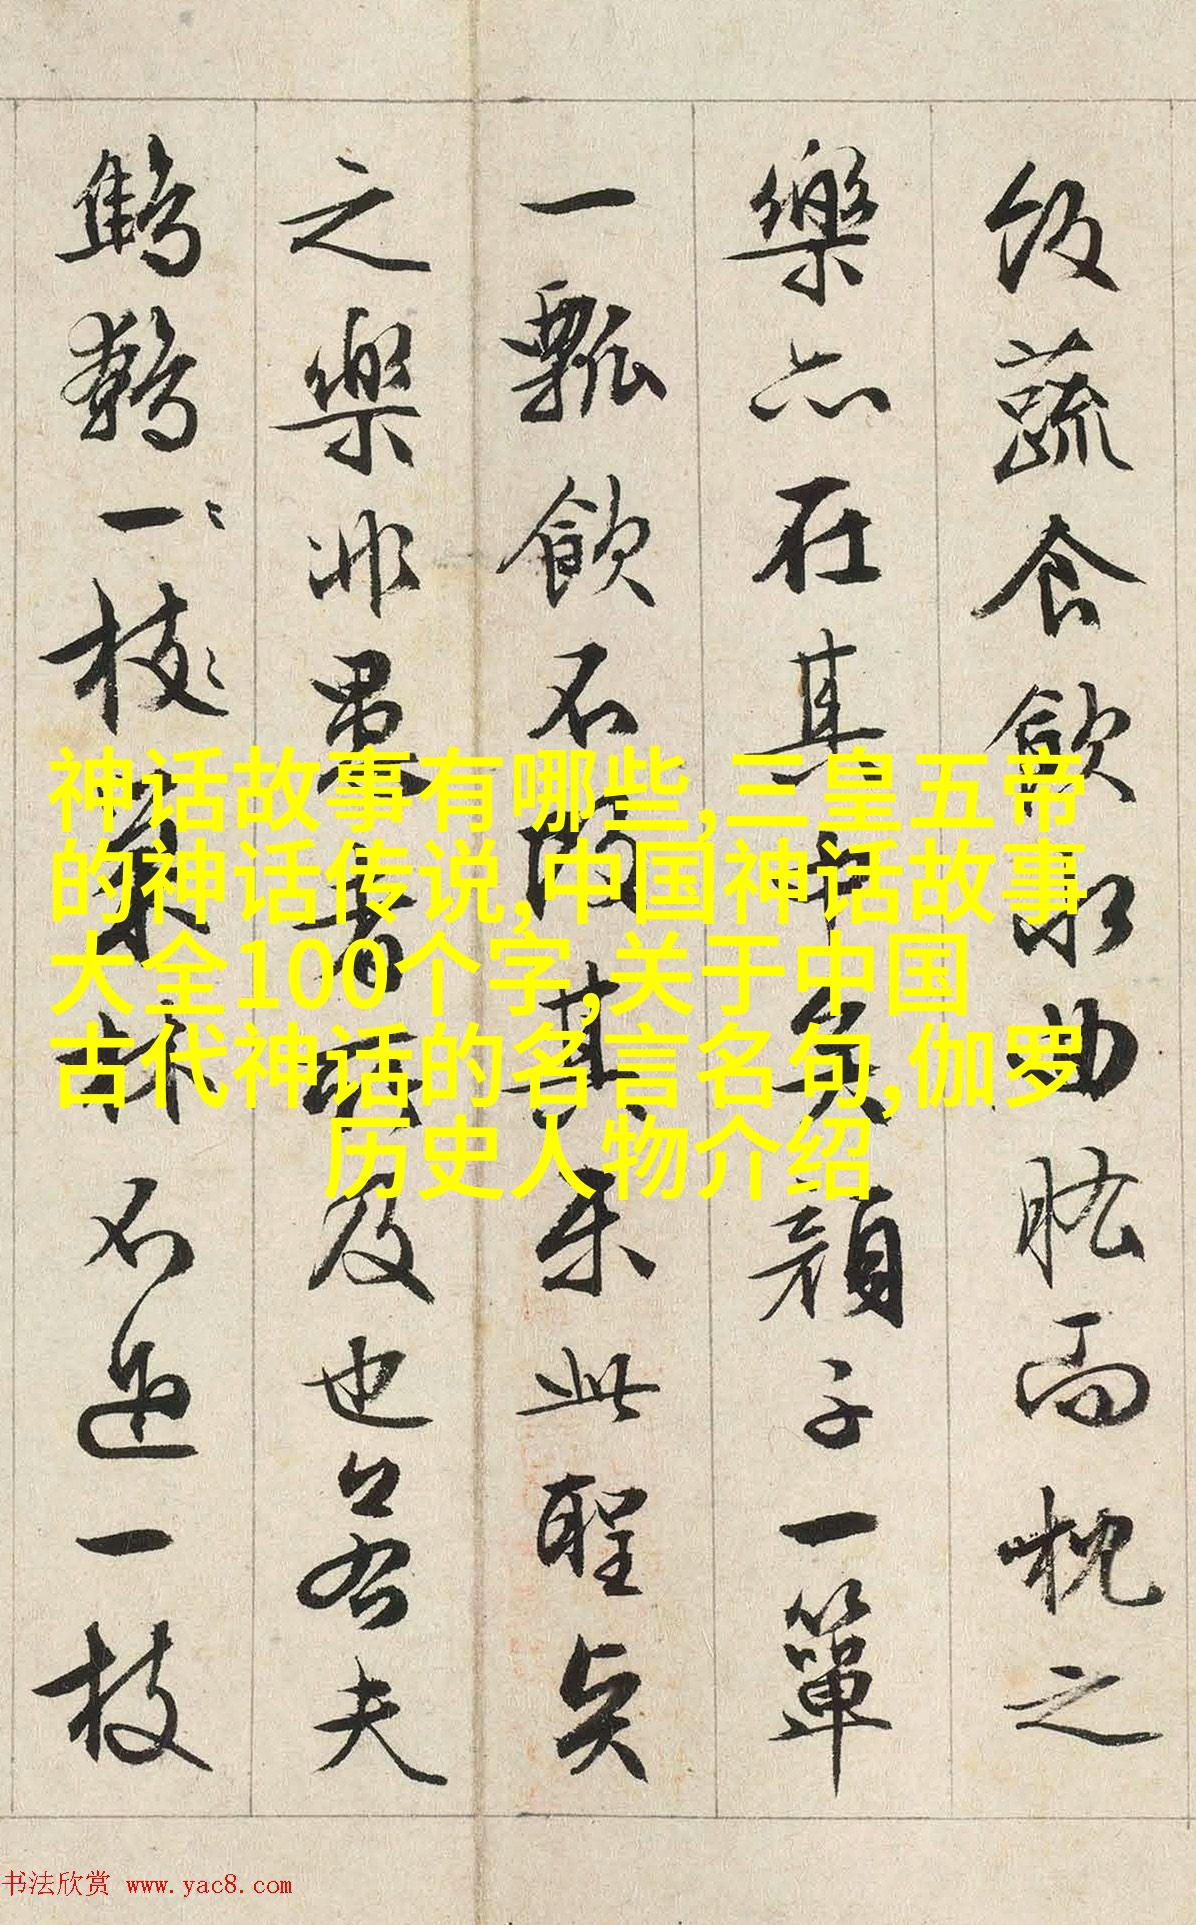 飯蔬食飲水曲肱而枕之
樂亦在其中矣顏子一簞
一瓢飲不改其樂此聖賢
之樂非愚者所及也若夫
鷦鷯一枝巢林不過一枝
神话故事有哪些,三皇五帝
的神话传说,中国神话故事
大全100个字,关于中国
古代神话的名言名句,伽罗
历史人物介绍
书法欣赏 www.yac8.com